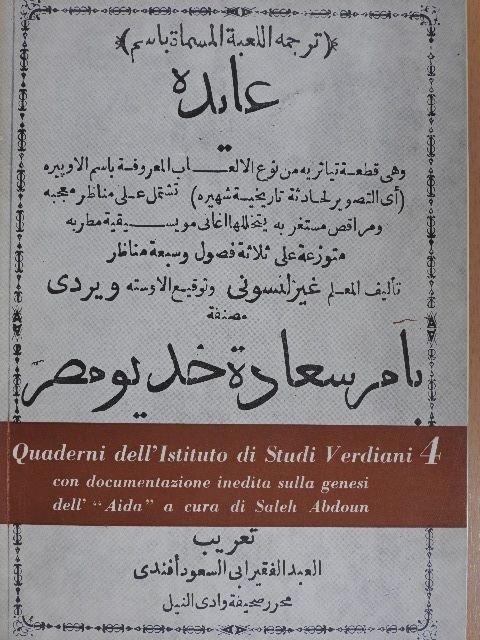 (ترجمه اللعبة المسماة باسم)
عايده
وهى قطعة تياتريه من نوع الالعاب المعروفة باسم الاوپيره
(أى التصوير لحادثة تاريخية شهيره) تشتمل على مناظر معجبه
ومراقص مستغربه يتخللها اغانى مويسيقية مطربه
متوزعة على ثلاثة فصول وسبعة مناظر
تأليف المعلم غيزلنسونى وتوقيع الاوسته ويردى
مصنفة
بامر سعادة خديو مصر
Quaderni dell'Istituto di Studi Verdiani 4
con documentazione inedita sulla genesi
dell' “Aida” a cura di Saleh Abdoun
تعريب
العبد الفقير ابى السعود أفندى
محرر صحيفة وادى النيل